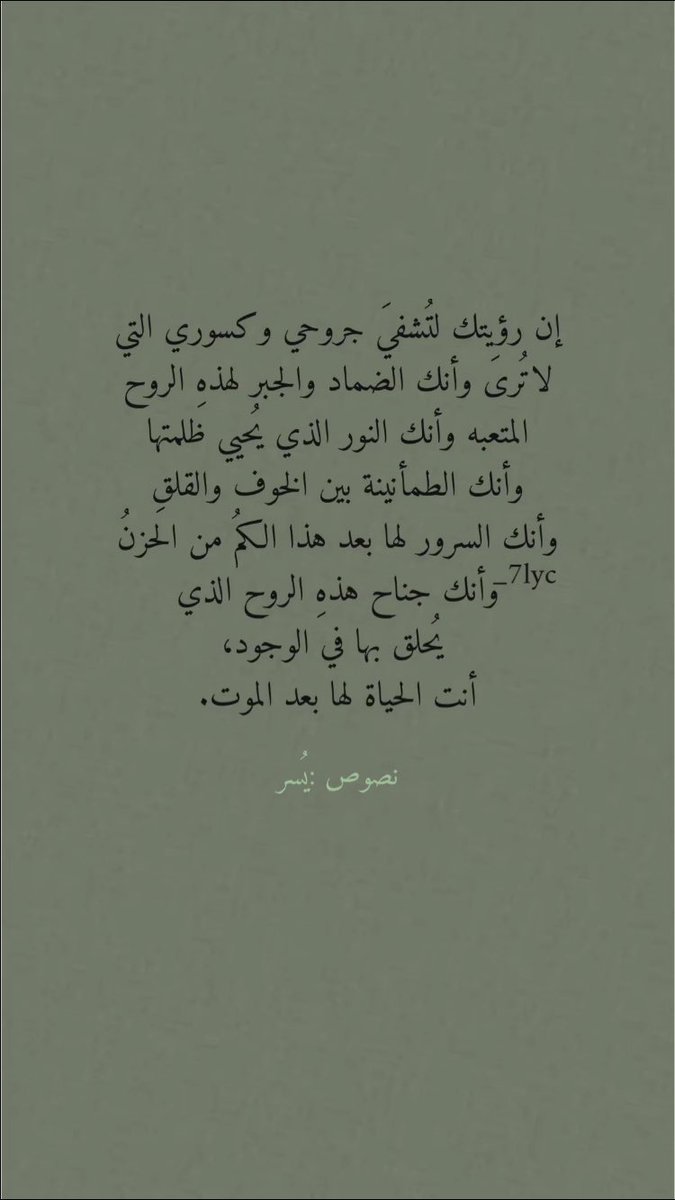 إن رؤيتك لتُشفيَ جروحي وكسوري التي
لاتُرىَ وأنك الضماد والجبر لهذهِ الروح
المتعبه وأنك النور الذي يُحيي ظلمتها
وأنك الطمأنينة بين الخوف والقلقِ
وأنك السرور لها بعد هذا الكمُ من الحزنُ
7lyc_وأنك جناح هذهِ الروح الذي
يُحلق بها في الوجود،
أنت الحياة لها بعد الموت.
نصوص :يُسر